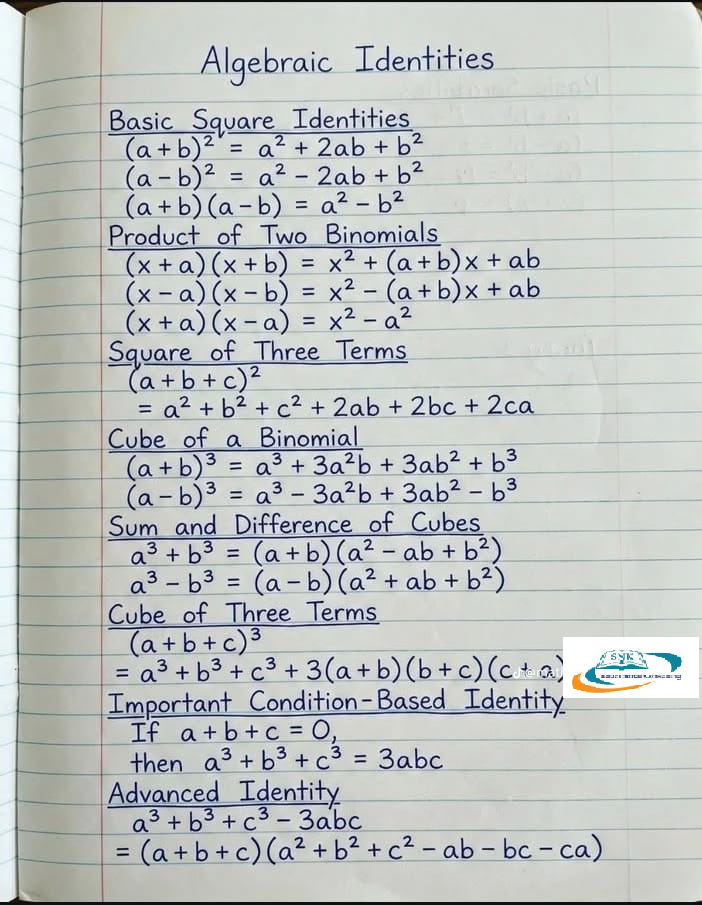 Algebraic Identities
Basic Square Identities
(a + b)² = a² + 2ab + b²
(a - b)² = a² - 2ab + b²
(a + b)(a - b) = a² - b²
Product of Two Binomials
(x + a)(x + b) = x² + (a + b)x + ab
(x - a)(x - b) = x² - (a + b)x + ab
(x + a)(x - a) = x² - a²
Square of Three Terms
(a + b + c)²
= a² + b² + c² + 2ab + 2bc + 2ca
Cube of a Binomial
(a + b)³ = a³ + 3a²b + 3ab² + b³
(a - b)³ = a³ - 3a²b + 3ab² - b³
Sum and Difference of Cubes
a³ + b³ = (a + b)(a² - ab + b²)
a³ - b³ = (a - b)(a² + ab + b²)
Cube of Three Terms
(a + b + c)³
= a³ + b³ + c³ + 3(a + b)(b + c)(c + a)
SNK
Important Condition-Based Identity
If a + b + c = 0,
then a³ + b³ + c³ = 3abc
Advanced Identity
a³ + b³ + c³ - 3abc
= (a + b + c)(a² + b² + c² - ab - bc - ca)